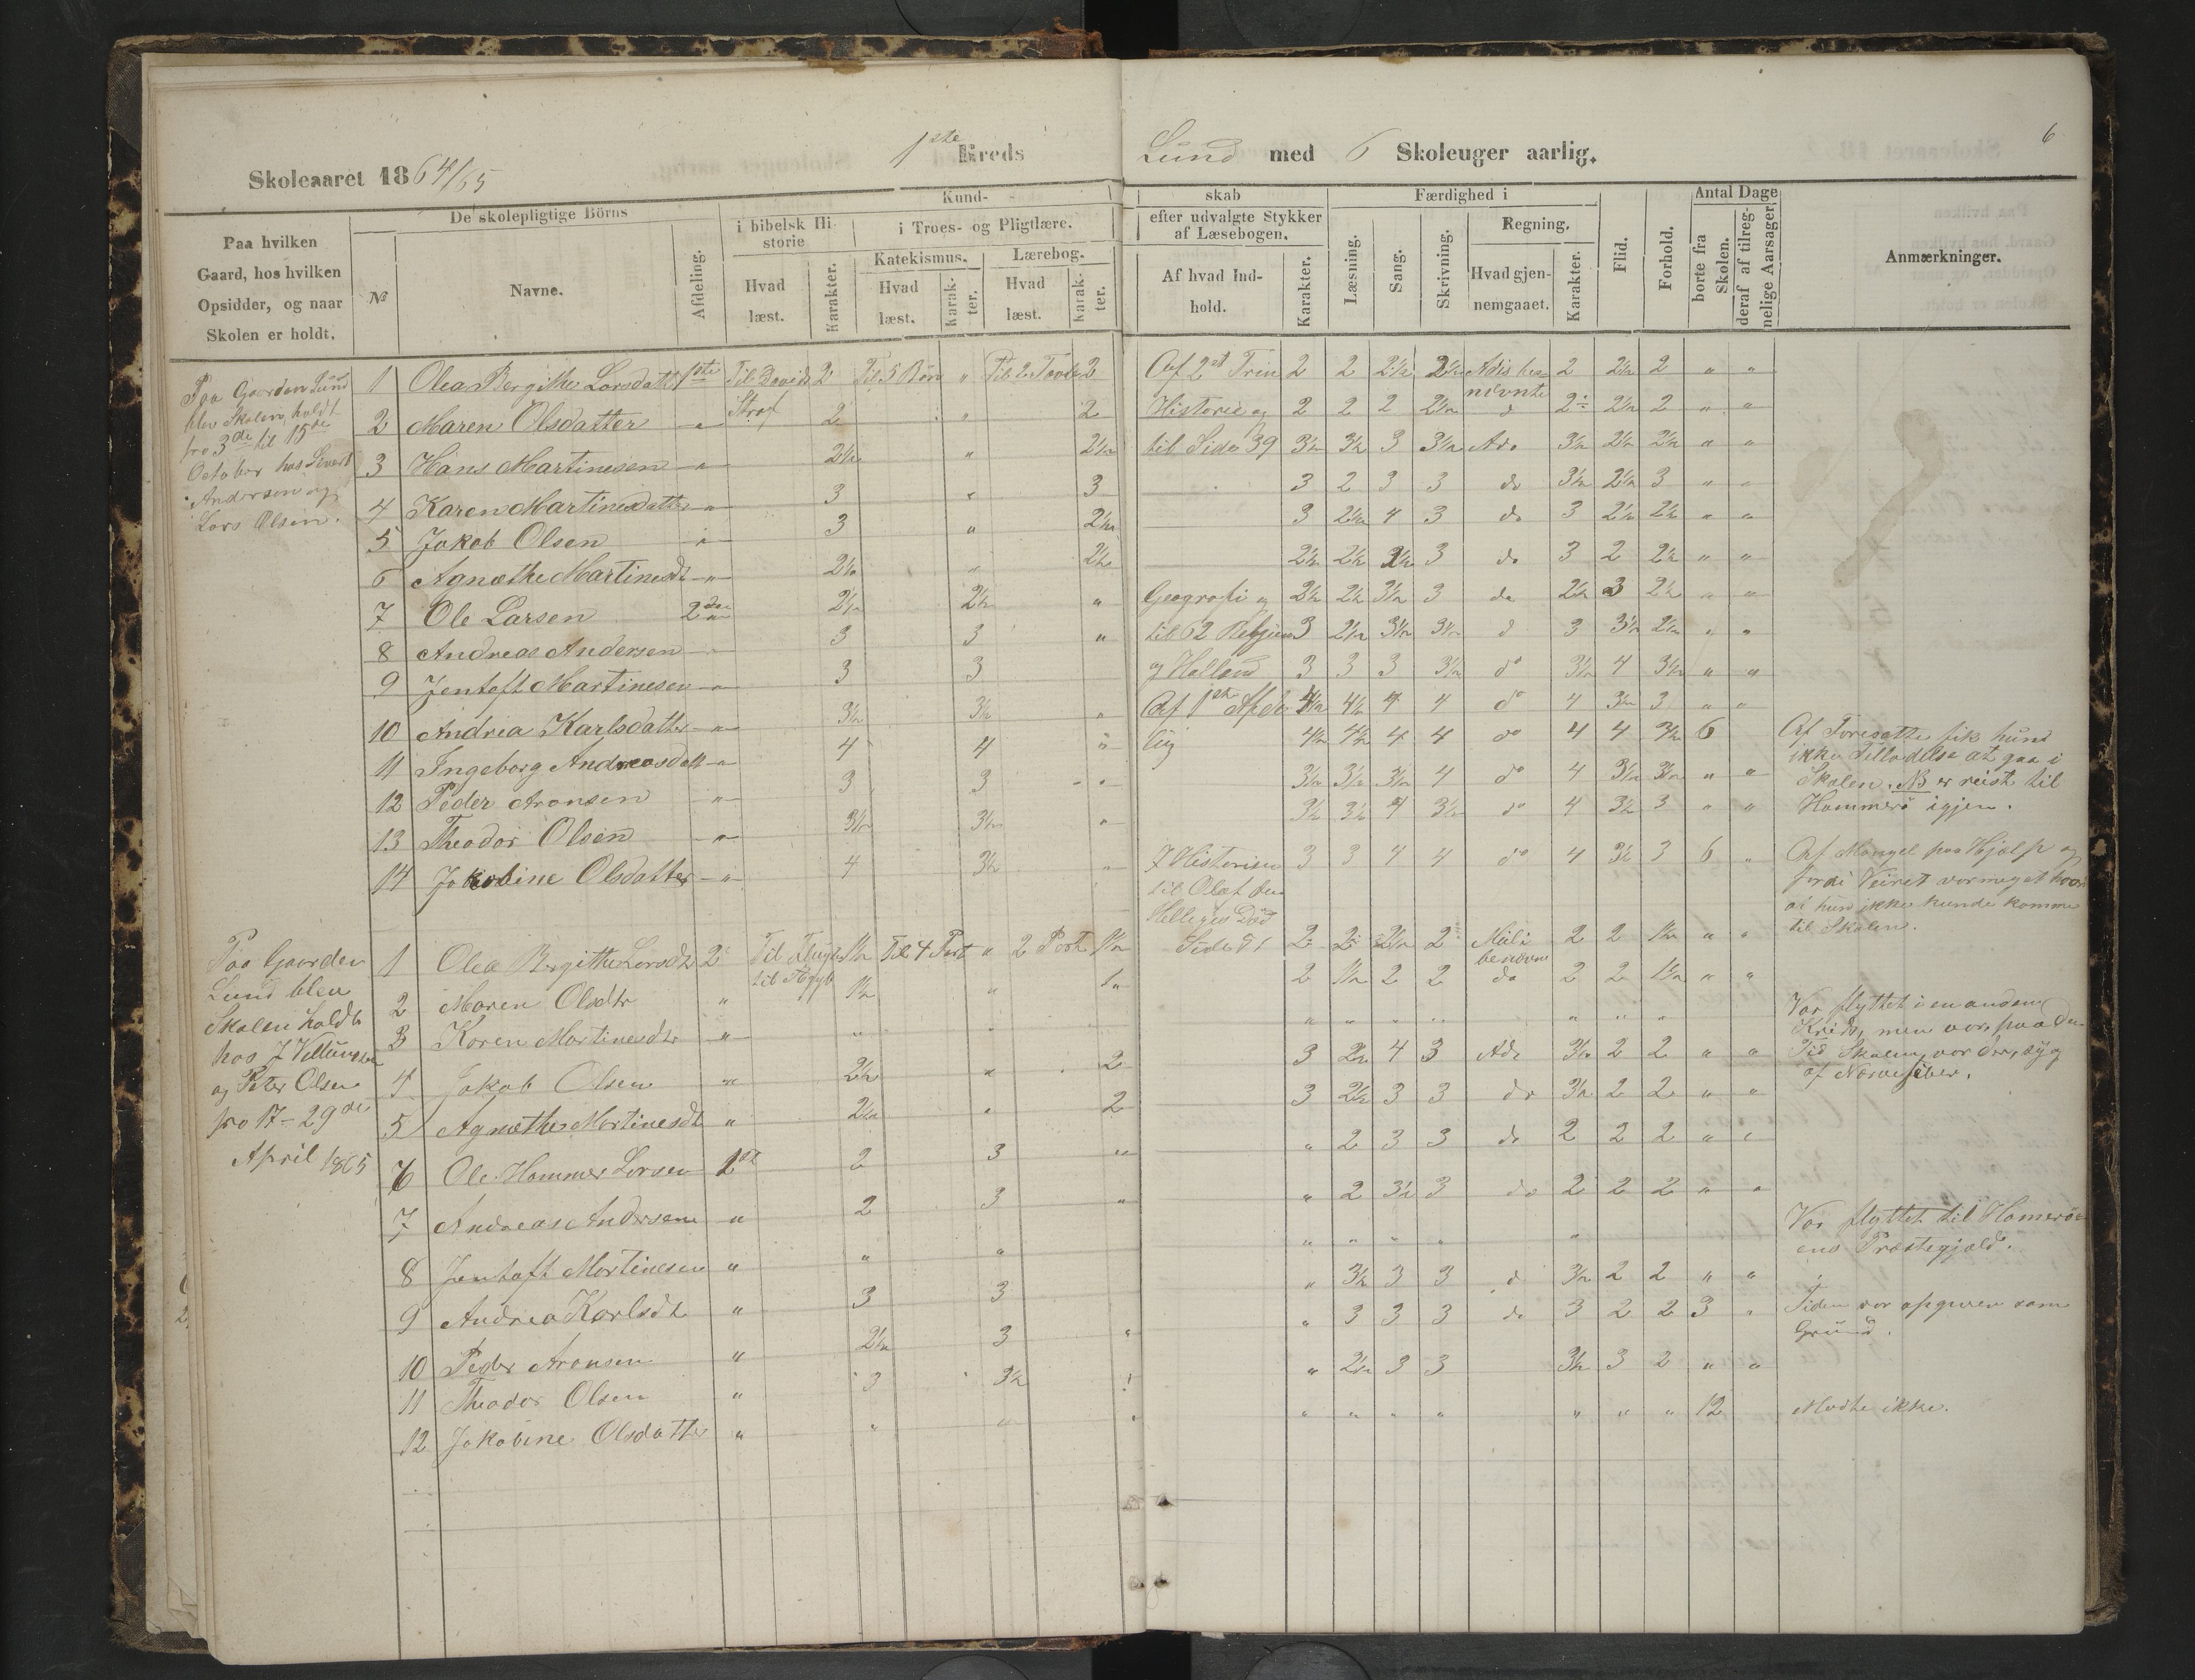 6
Skoleaaret 1864/65
1ste Kreds
Lund med 6 Skoleuger aarlig.
Paa hvilken
Gaard, hos hvilken
Opsidder, og naar
Skolen er holdt.
De skolepligtige Börns
№
Navne.
Afdeling.
Kund-
i bibelsk Hi-
storie
Hvad
læst.
Karakter.
i Troes- og Pligtlære.
Katekismus.
Hvad
læst.
Karak-
ter.
Lærebog.
Hvad
læst.
Karak-
ter.
skab
efter udvalgte Stykker
af Læsebogen.
Af hvad Ind-
hold.
Karakter.
Færdighed i
Læsning.
Sang.
Skrivning.
Regning.
Hvad gjen-
nemgaaet.
Karakter.
Flid.
Forhold.
Antal Dage
borte fra
Skolen.
deraf af tilreg-
nelige Aarsager.
Anmærkninger.
Paa Gaarden Lund
blev Skolen holdt
fra 3de til 15de
October hos Sivert
Andersen og
Lars Olsen.
1 Olea Bergithe Larsdatter 1ste Til Davids 2 Til 3 Bön " Til 2 Tavle 2 Af 2det Trin 2 2 2½ 2½ Adis be- 2 2½ 2 " "
nævnte
2 Maren Olsdatter " Straf 2 " 2 Historie og 2 2 2 2½ d 2 2½ 2 " "
3 Hans Martinesen " 2½ " 2½ til Side 39 3½ 3½ 3 3½ Ado 3½ 2½ 2½ " "
4 Karen Martinesdatter " 3 " 3 3 2 3 3 do 3½ 2½ 3 " "
5 Jakob Olsen " 3 " 2½ 3 2½ 4 3 do 3 2½ 2½ " "
6 Agnethe Martinesdt " 2½ " 2½ 2½ 2½ 3½ 3 do 3 2 2½ " "
7 Ole Larsen 2den 2½ 2½ " Geografi og 2½ 2½ 3½ 3 do 2½ 3 2½ " "
8 Andreas Andersen " 3 3 " til 62 Belgien 3 2½ 3½ 3½ d 3 3½ 2½ " "
9 Jentoft Martinesen " 3 3 og Holland 3 3 3 3½ do 3½ 4 3½ " "
10 Andrea Karlsdatter " 3½ 3½ " Af 1ste 4½ 4½ 4 4 do 4 3½ 3 " "
11 Ingeborg Andreasdatt " 4 4 " 4½ 4½ 4 4 do 4 4 3½ 6
12 Peder Aronsen " 3 3 " 3½ 3½ 3½ 4 do 4 3½ 3½ " "
13 Theodor Olsen " 3½ 3½ " 3½ 3½ 4 3½ do 4 3½ 3 " "
14 Jakobine Olsdatter " 4 3½ " I Historien 3 3 4 4 do 4 3½ 3 6 "
til Olaf den
Helliges Död
Af Foresatte fik hun
ikke Tilladelse at gaa i
Skolen. NB er reist til
Hammerö igjen.
Af Mangel paa Hjælp og
fordi Veiret var meget
at hun ikke kunde komme
til Skolen.
Paa Gaarden
Lund blev
Skolen holdt
hos J
og Peter Olsen
fra 17-29de
April 1865
1 Olea Bergithe Larsdt 2 Til Flugt 1½ Til 4 Part " 2 Part 1½ Side 51 2 2 2½ 2 2 2 1½ " "
til Ægypt benævnte
2 Maren Olsdtr " 1½ " 1½ 2 1½ 2 2 do 2 2 1½ " "
3 Karen Martinesdtr " " " " " " " " " "
4 Jakob Olsen " 2½ " 2 3 2½ 4 3 Ado 3½ 2 2 " "
5 Agnethe Martinesdt " 2½ " 2 3 2½ 3 3 do 3½ 2 2 " "
6 Ole Hammer Larsen 1ste 2 3 " " 2 3 3 do 2 2 2 " "
7 Andreas Andersen " 2 3 " " 2 3½ 3 do 2 2 2 " "
8 Jentoft Martinesen " " " " " " " "
9 Andrea Karlsdt " 3 3 " 3½ 3 3 d 3½ 2 2 " "
10 Peder Aronsen " 2½ 3 " " 3 3 3 do 3 2 2 3 "
11 Theodor Olsen " 3 3½ " 2½ 3 3 3½ 3 2 " "
12 Jakobine Olsdatter " " " " " " " " " " " 12
Var flyttet i en anden
Kreds, men var paa den
Tid Skolen var der, syg
af Nervefeber.
Var flyttet til Hamerö-
ens Præstegjæld.
Tiden var opgiven som
Grund.
Mödte ikke.